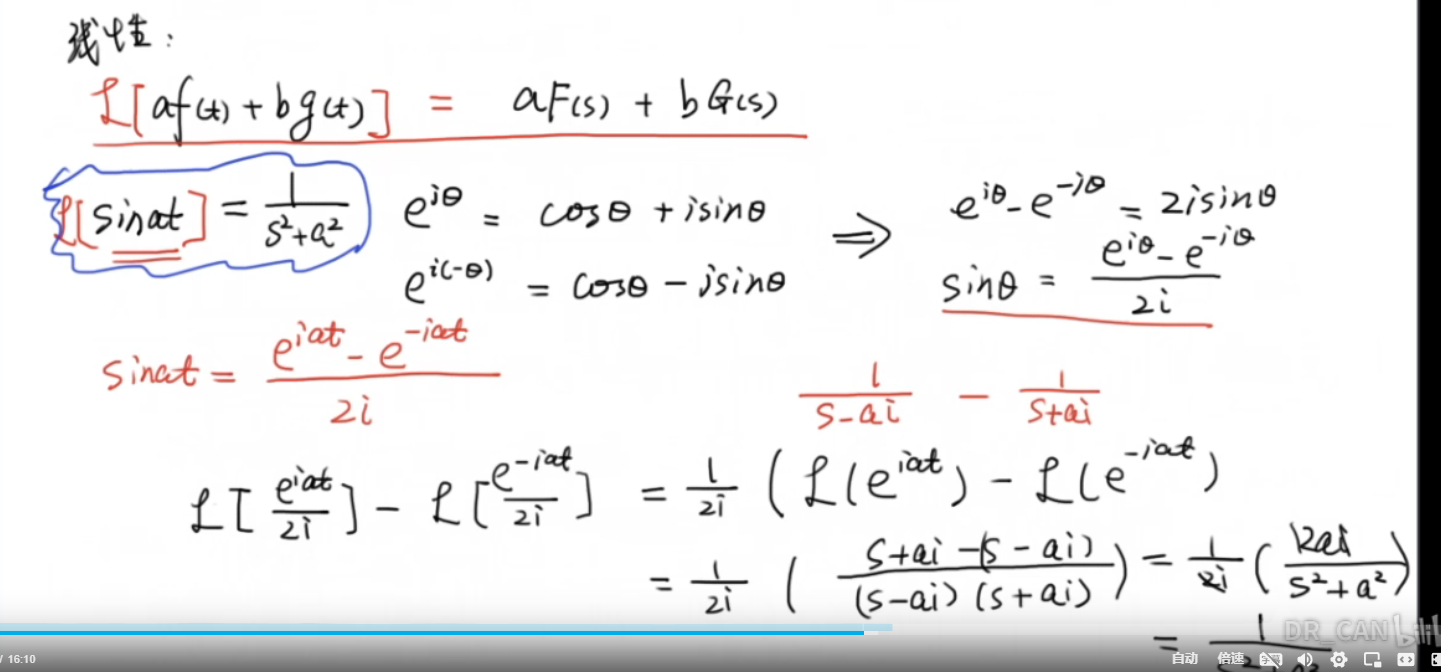 线性：
ℒ[af(t) + bg(t)] = aF(s) + bG(s)
ℒ[sinat] = 1/(s²+a²)
e^{iθ} = cosθ + isinθ
e^{i(-θ)} = cosθ - isinθ
⇒
e^{iθ} - e^{-iθ} = 2isinθ
sinθ = (e^{iθ} - e^{-iθ})/2i
sinat = (e^{iat} - e^{-iat})/2i
1/(s-ai) - 1/(s+ai)
ℒ[e^{iat}/2i] - ℒ[e^{-iat}/2i] = 1/2i (ℒ(e^{iat}) - ℒ(e^{-iat})
= 1/2i ( (s+ai-(s-ai))/((s-ai)(s+ai)) ) = 1/2i ( 2ai/(s²+a²) )
DR_CAN
= 1/
/ 16:10
自动 倍速